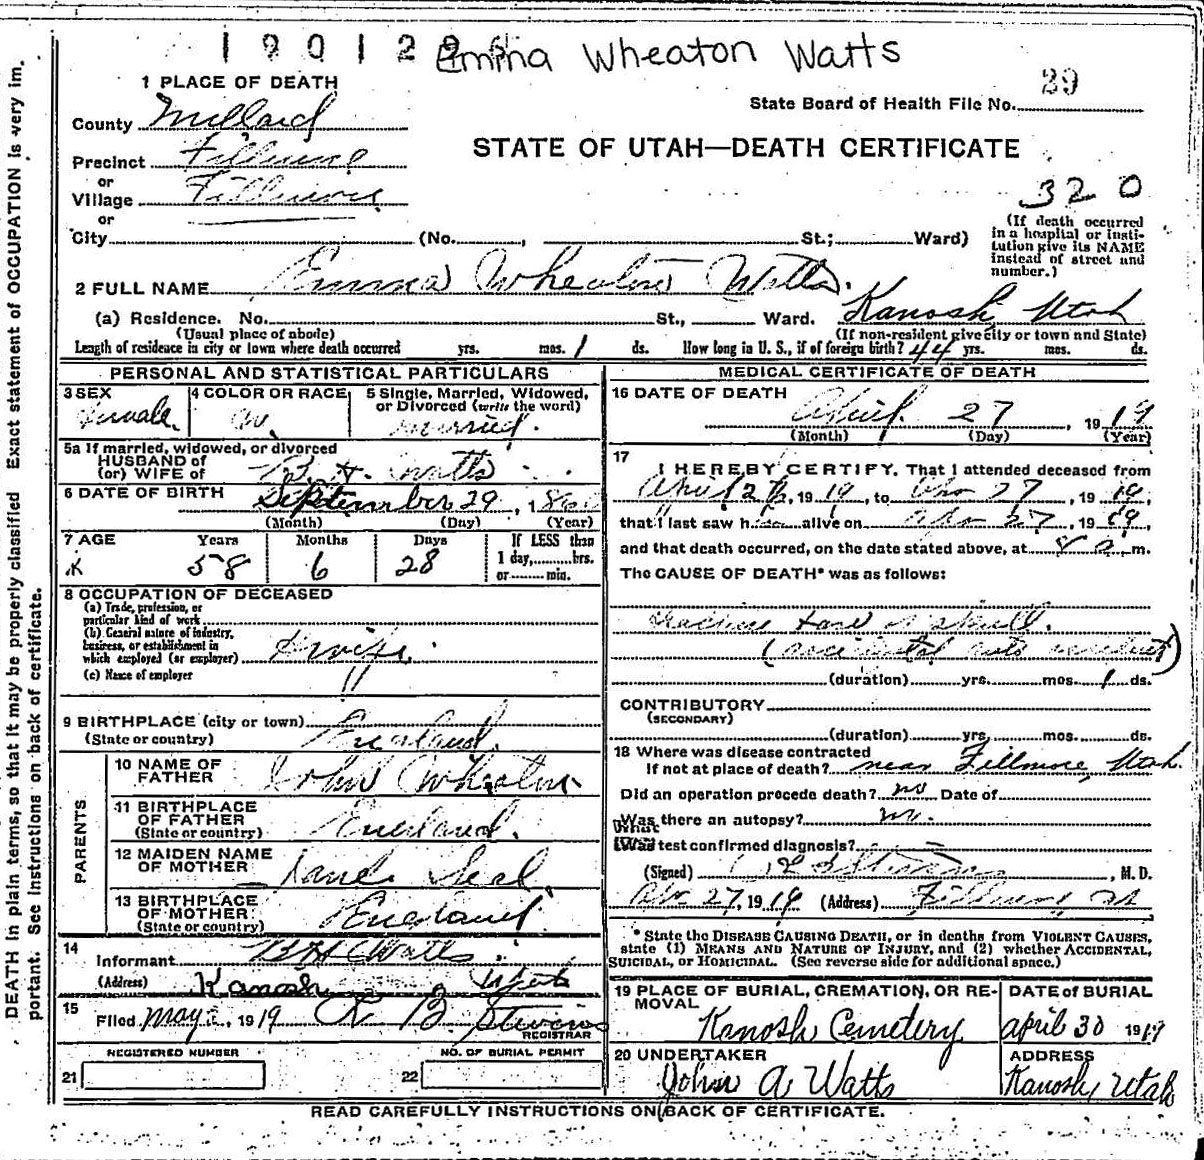 1 9 0 1 2 9 Emma Wheaton Watts
1 PLACE OF DEATH
29
State Board of Health File No.
County Millard
STATE OF UTAH—DEATH CERTIFICATE
Precinct Fillmore
or
Village Fillmore
320
or
City (No. , St.; Ward)
(If death occurred in a hospital or insti-
tution give its NAME
instead of street and
number.)
2 FULL NAME Emma Wheaton Watts.
(a) Residence. No. St., Ward. Kanosh Utah
(Usual place of abode) (If non-resident give city or town and State)
Length of residence in city or town where death occurred yrs. mos. 1 ds. How long in U. S., if of foreign birth? 44 yrs. mos. ds.
PERSONAL AND STATISTICAL PARTICULARS
3 SEX
Female
4 COLOR OR RACE
W.
5 Single, Married, Widowed,
or Divorced (write the word)
Married.
5a If married, widowed, or divorced
HUSBAND of
(or) WIFE of B. H. Watts
6 DATE OF BIRTH
September 29, 1860
(Month) (Day) (Year)
7 AGE Years Months Days If LESS than
58 6 28 1 day, hrs.
or min.
8 OCCUPATION OF DECEASED
(a) Trade, profession, or
particular kind of work
(b) General nature of industry,
business, or establishment in
which employed (or employer) H wife
(c) Name of employer "
9 BIRTHPLACE (city or town)
(State or country) England.
PARENTS
10 NAME OF
FATHER John Wheaton
11 BIRTHPLACE
OF FATHER
(State or country) England.
12 MAIDEN NAME
OF MOTHER Seal
13 BIRTHPLACE
OF MOTHER
(State or country) England
14
Informant B H Watts
(Address) Kanosh Utah
15
Filed May 2, 1919 K B. Stevens
REGISTRAR
REGISTERED NUMBER
21
NO. OF BURIAL PERMIT
22
MEDICAL CERTIFICATE OF DEATH
16 DATE OF DEATH
April 27, 1919
(Month) (Day) (Year)
17
I HEREBY CERTIFY, That I attended deceased from
April 26, 1919, to Apr 27, 1919,
that I last saw her alive on Apr 27, 1919,
and that death occurred, on the date stated above, at 8 a m.
The CAUSE OF DEATH* was as follows:
Fracture base of skull.
(accidental auto accident)
(duration) yrs. mos. 1 ds.
CONTRIBUTORY
(SECONDARY)
(duration) yrs. mos. ds.
18 Where was disease contracted
If not at place of death? near Fillmore, Utah.
Did an operation precede death? no Date of
Was there an autopsy? no.
What
test confirmed diagnosis?
(Signed) , M. D.
Apr 27, 1919 (Address) Fillmore, Ut
* State the DISEASE CAUSING DEATH, or in deaths from VIOLENT CAUSES,
state (1) MEANS AND NATURE OF INJURY, and (2) whether ACCIDENTAL,
SUICIDAL, or HOMICIDAL. (See reverse side for additional space.)
19 PLACE OF BURIAL, CREMATION, OR RE-
MOVAL
Kanosh Cemetery
DATE of BURIAL
April 30 1919
20 UNDERTAKER
John A Watts
ADDRESS
Kanosh, Utah
READ CAREFULLY INSTRUCTIONS ON BACK OF CERTIFICATE.
DEATH in plain terms, so that it may be properly classified Exact statement of OCCUPATION is very im.
portant. See instructions on back of certificate.